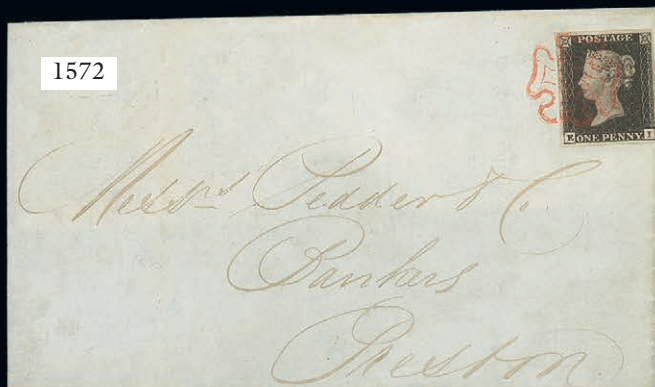 1572
POSTAGE
E ONE PENNY. I
Messrs Pedder & Co
Bankers
Preston